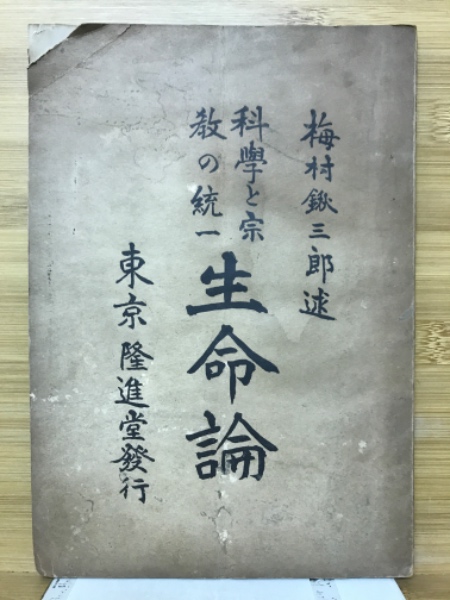 梅村鍬三郎述
科學と宗
教の統一
生命論
東京隆進堂發行